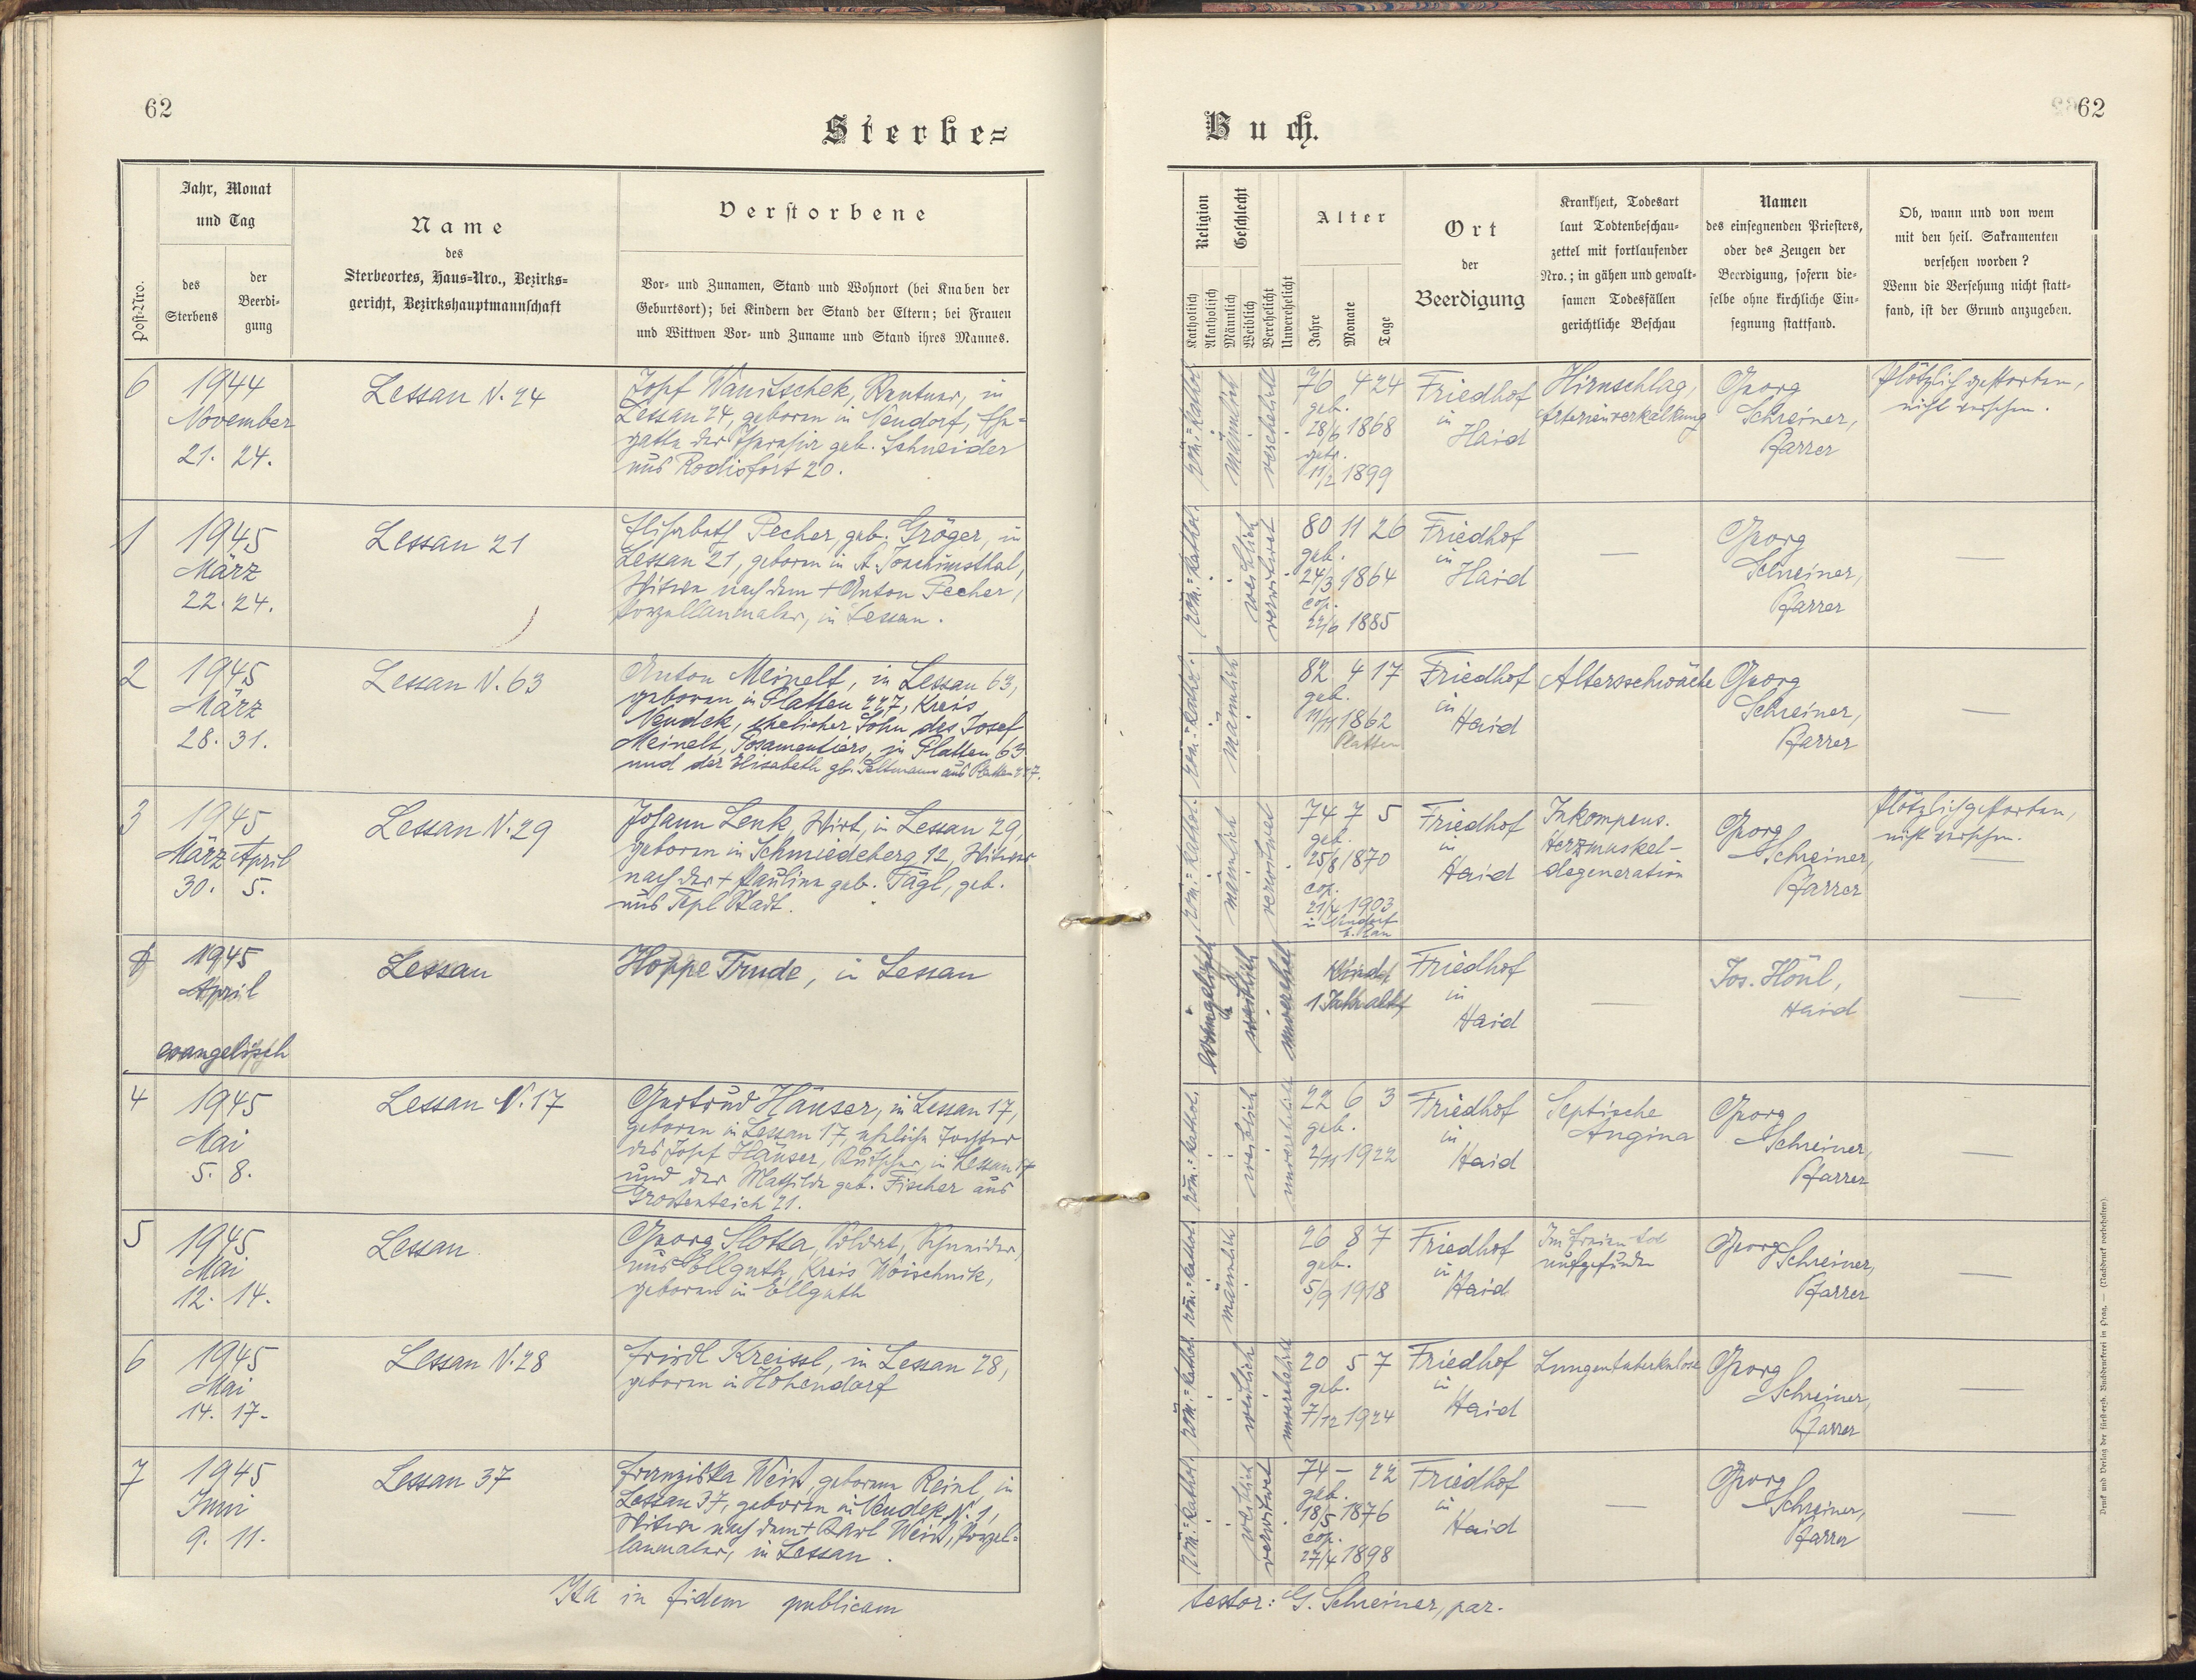 62
Sterbe=
Jahr, Monat
und Tag
Post-Nro.
des
Sterbens
der
Beerdi-
gung
Name
des
Sterbeortes, Haus=Nro., Bezirks=
gericht, Bezirkshauptmannschaft
Verstorbene
Vor- und Zunamen, Stand und Wohnort (bei Knaben der
Geburtsort); bei Kindern der Stand der Eltern; bei Frauen
und Wittwen Vor- und Zuname und Stand ihres Mannes.
6
1944
November
21. 24.
Lessau N. 24
Josef Wanitschek, Rentner, in
Lessau 24, geboren in Neudorf, Ehe=
gatte der Theresia geb. Schneider
aus Rodisfort 20.
1
1945
März
22. 24.
Lessau 21
Elisabeth Pecher, geb. Gröger, in
Lessau 21, geboren in St. Joachimsthal,
Witwe nach dem + Anton Pecher,
Porzellanmaler, in Lessau.
2
1945
März
28. 31.
Lessau N. 63
Anton Meinelt, in Lessau 63,
geboren in Platten 227, Kreis
Neudek, ehelicher Sohn des Josef
Meinelt, Posamentiers, in Platten 63
und der Elisabeth gb. aus Platten 227.
3
1945
März April
30. 5.
Lessau N. 29
Johann Lenk, Wirt, in Lessau 29,
geboren in Schmiedeberg 12, Witwer
nach der + Paulina geb. Tägl, geb.
aus Tepl Stadt.
1945
April
evangelisch
Lessau
Hoppe Trude, in Lessau
4
1945
Mai
5. 8.
Lessau N. 17
Gertrud Häuser, in Lessau 17,
geboren in Lessau 17, eheliche Tochter
des Josef Häuser, in Lessau 17
und der Mathilde geb. Fischer aus
Grossenteich 21.
5
1945.
Mai
12. 14.
Lessau
Georg Slotta, Soldat, Schneider,
aus Ellguth, Kreis Woischnik,
geboren in Ellguth
6
1945
Mai
14. 17.
Lessau N. 28
Friedl Kreissl, in Lessau 28,
geboren in Hohendorf
7
1945
Juni
9. 11.
Lessau 37
Franziska Weis, geborene Reinl, in
Lessau 37, geboren in Neudek N. 1,
Witwe nach dem + Karl Weis, Porzel=
lanmaler, in Lessau.
Ita in fidem publicam
62
Buch.
Religion
Geschlecht
Katholisch
Akatholisch
Männlich
Weiblich
Verehelicht
Unverehelicht
Alter
Jahre
Monate
Tage
Ort
der
Beerdigung
Krankheit, Todesart
laut Todtenbeschau-
zettel mit fortlaufender
Nro.; in gähen und gewalt-
samen Todesfällen
gerichtliche Beschau
Namen
des einsegnenden Priesters,
oder des Zeugen der
Beerdigung, sofern die-
selbe ohne kirchliche Ein-
segnung stattfand.
Ob, wann und von wem
mit den heil. Sakramenten
versehen worden?
Wenn die Versehung nicht statt-
fand, ist der Grund anzugeben.
röm.=kathol.
männlich
verehelicht
76 4 24
geb.
28/6 1868
getr.
11/2 1899
Friedhof
in
Haid
Hirnschlag,
Arterienverkalkung
Georg
Schreiner,
Pfarrer
Plötzlich gestorben,
nicht versehen.
röm.=kathol.
weiblich
verwitwet
80 11 26
geb.
24/3 1864
cop.
22/6 1885
Friedhof
in
Haid
—
Georg
Schreiner,
Pfarrer
—
röm.=kathol.
männlich
82 4 17
geb.
11/11 1862
Platten
Friedhof
in
Haid
Altersschwäche
Georg
Schreiner,
Pfarrer
—
röm.=kathol.
männlich
verwitwet
74 7 5
geb.
25/8 1870
cop.
21/4 1903
Friedhof
in
Haid
Inkompens.
Herzmuskel-
degeneration
Georg
Schreiner,
Pfarrer
Plötzlich gestorben,
nicht versehen.
—
evangelisch
weiblich
unverehel.
Kind
1 Jahr alt
Friedhof
in
Haid
—
Jos. Hönl,
Haid
—
röm.=kathol.
weiblich
unverehelicht
22 6 3
geb.
2/11 1922
Friedhof
in
Haid
Septische
Angina
Georg
Schreiner,
Pfarrer
—
röm.=kathol.
männlich
26 8 7
geb.
5/9 1918
Friedhof
in
Haid
Im Freien tot
aufgefunden
Georg
Schreiner,
Pfarrer
—
röm.=kathol.
weiblich
unverehelicht
20 5 7
geb.
7/12 1924
Friedhof
in
Haid
Lungentuberkulose
Georg
Schreiner,
Pfarrer
—
röm.=kathol.
weiblich
verwitwet
74 – 22
geb.
18/5 1876
cop.
27/4 1898
Friedhof
in
Haid
—
Georg
Schreiner,
Pfarrer
—
testor: G. Schreiner, par.
Druck und Verlag der fürsterzb. Buchdruckerei in Prag. — (Nachdruck vorbehalten)